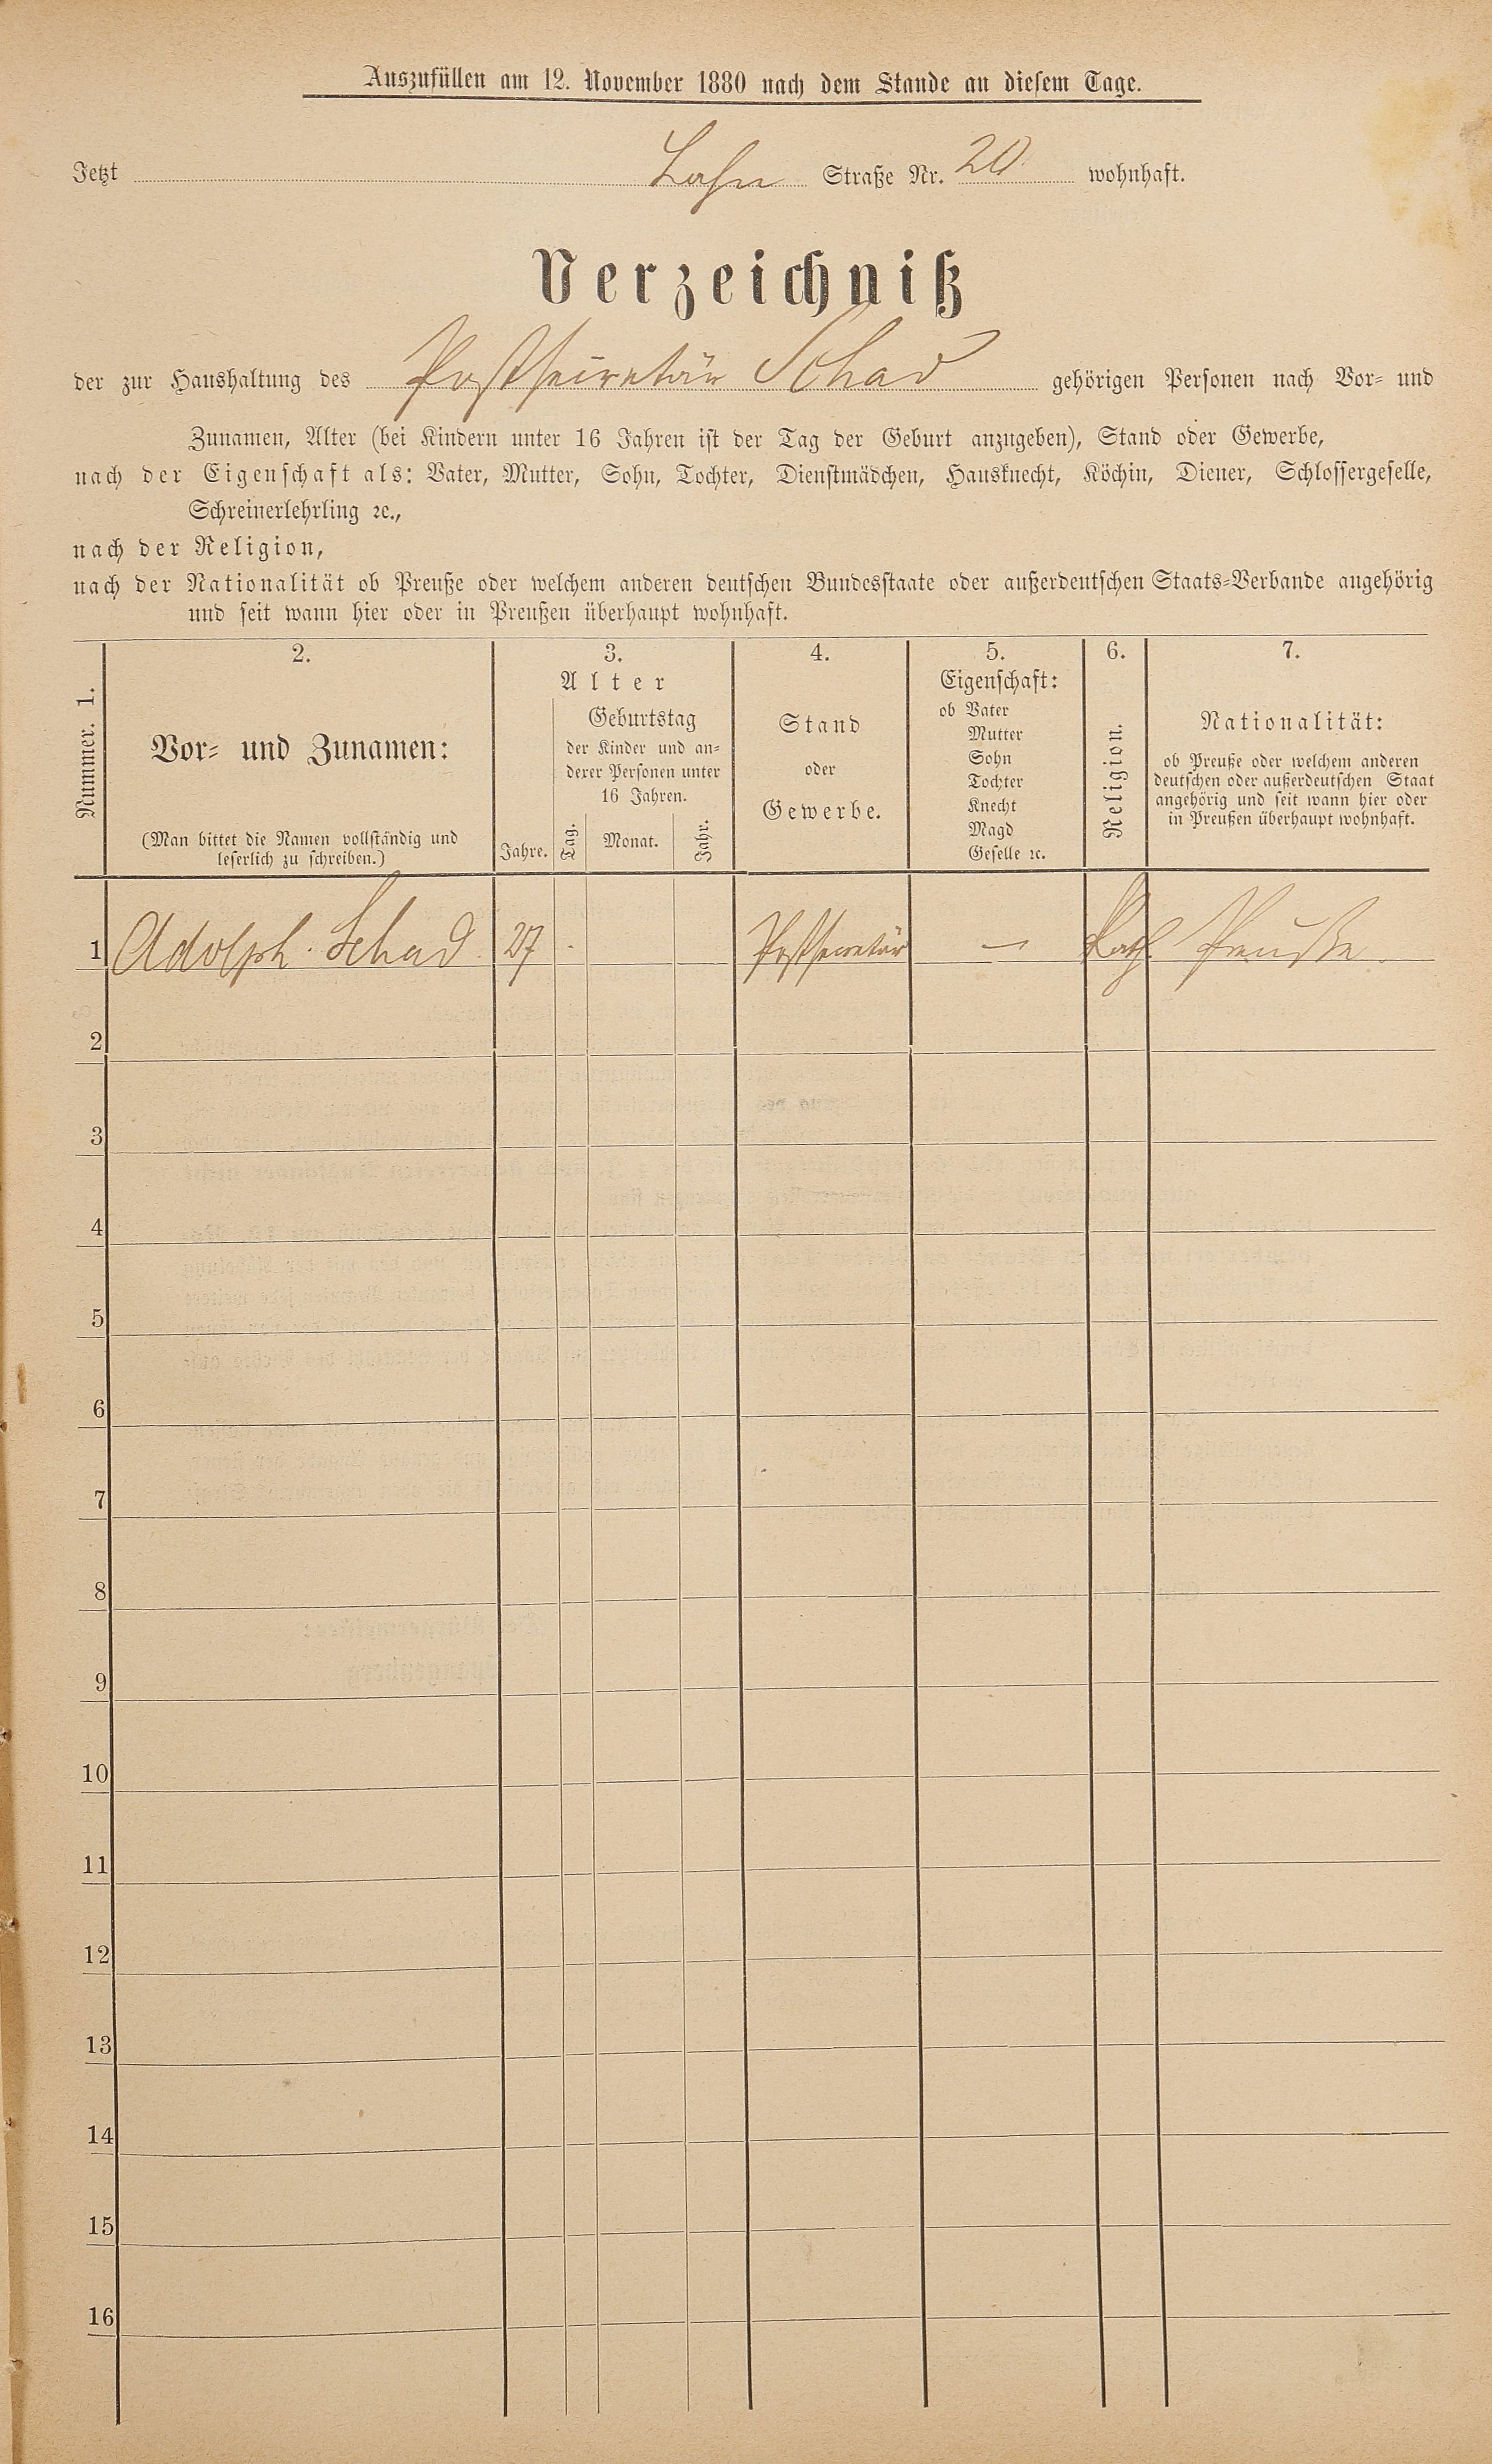 Auszufüllen am 12. November 1880 nach dem Stande an diesem Tage.
Jetzt Lahn Straße Nr. 20 wohnhaft.
Verzeichniß
der zur Haushaltung des Postsecretär Schad gehörigen Personen nach Vor- und
Zunamen, Alter (bei Kindern unter 16 Jahren ist der Tag der Geburt anzugeben), Stand oder Gewerbe,
nach der Eigenschaft als: Vater, Mutter, Sohn, Tochter, Dienstmädchen, Hausknecht, Köchin, Diener, Schlossergeselle,
Schreinerlehrling ꝛc.,
nach der Religion,
nach der Nationalität ob Preuße oder welchem anderen deutschen Bundesstaate oder außerdeutschen Staats-Verbande angehörig
und seit wann hier oder in Preußen überhaupt wohnhaft.
Nummer. 1.
2.
Vor- und Zunamen:
(Man bittet die Namen vollständig und
leserlich zu schreiben.)
3.
Alter
Jahre.
Geburtstag
der Kinder und an-
derer Personen unter
16 Jahren.
Tag. Monat. Jahr.
4.
Stand
oder
Gewerbe.
5.
Eigenschaft:
ob Vater
Mutter
Sohn
Tochter
Knecht
Magd
Geselle ꝛc.
6.
Religion.
7.
Nationalität:
ob Preuße oder welchem anderen
deutschen oder außerdeutschen Staat
angehörig und seit wann hier oder
in Preußen überhaupt wohnhaft.
1 Adolph Schad 27 Postsecretär — Kath. Preuße.
2
3
4
5
6
7
8
9
10
11
12
13
14
15
16